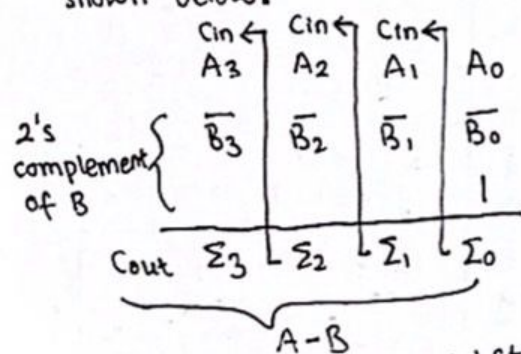 shown below.
Cin Cin Cin
A3 A2 A1 A0
2's complement of B
B̅3 B̅2 B̅1 B̅0
1
Cout Σ3 Σ2 Σ1 Σ0
A-B